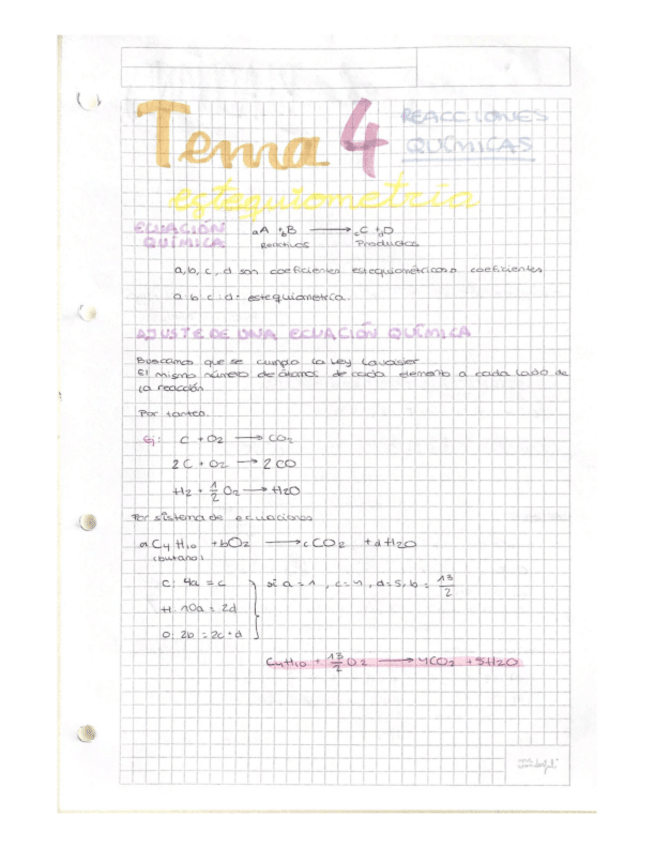 Tema 4 REACCIONES QUÍMICAS
estequiometría
ECUACIÓN QUÍMICA
aA + bB ⟶ cC + dD
Reactivos Productos
a, b, c, d son coeficientes estequiométricos o coeficientes
a: b: c: d: estequiometría.
AJUSTE DE UNA ECUACIÓN QUÍMICA
Buscamos que se cumpla la Ley Lavoisier
El mismo número de átomos de cada elemento a cada lado de
la reacción
Por tanteo.
Ej: C + O2 ⟶ CO2
2C + O2 ⟶ 2CO
H2 + 1/2 O2 ⟶ H2O
Por sistema de ecuaciones
aC4H10 + bO2 ⟶ cCO2 + dH2O
(butano)
C: 4a = c
si a = 1, c = 4, d = 5, b = 13/2
H: 10a = 2d
O: 2b = 2c + d
C4H10 + 13/2 O2 ⟶ 4CO2 + 5H2O
mr. wonderful*